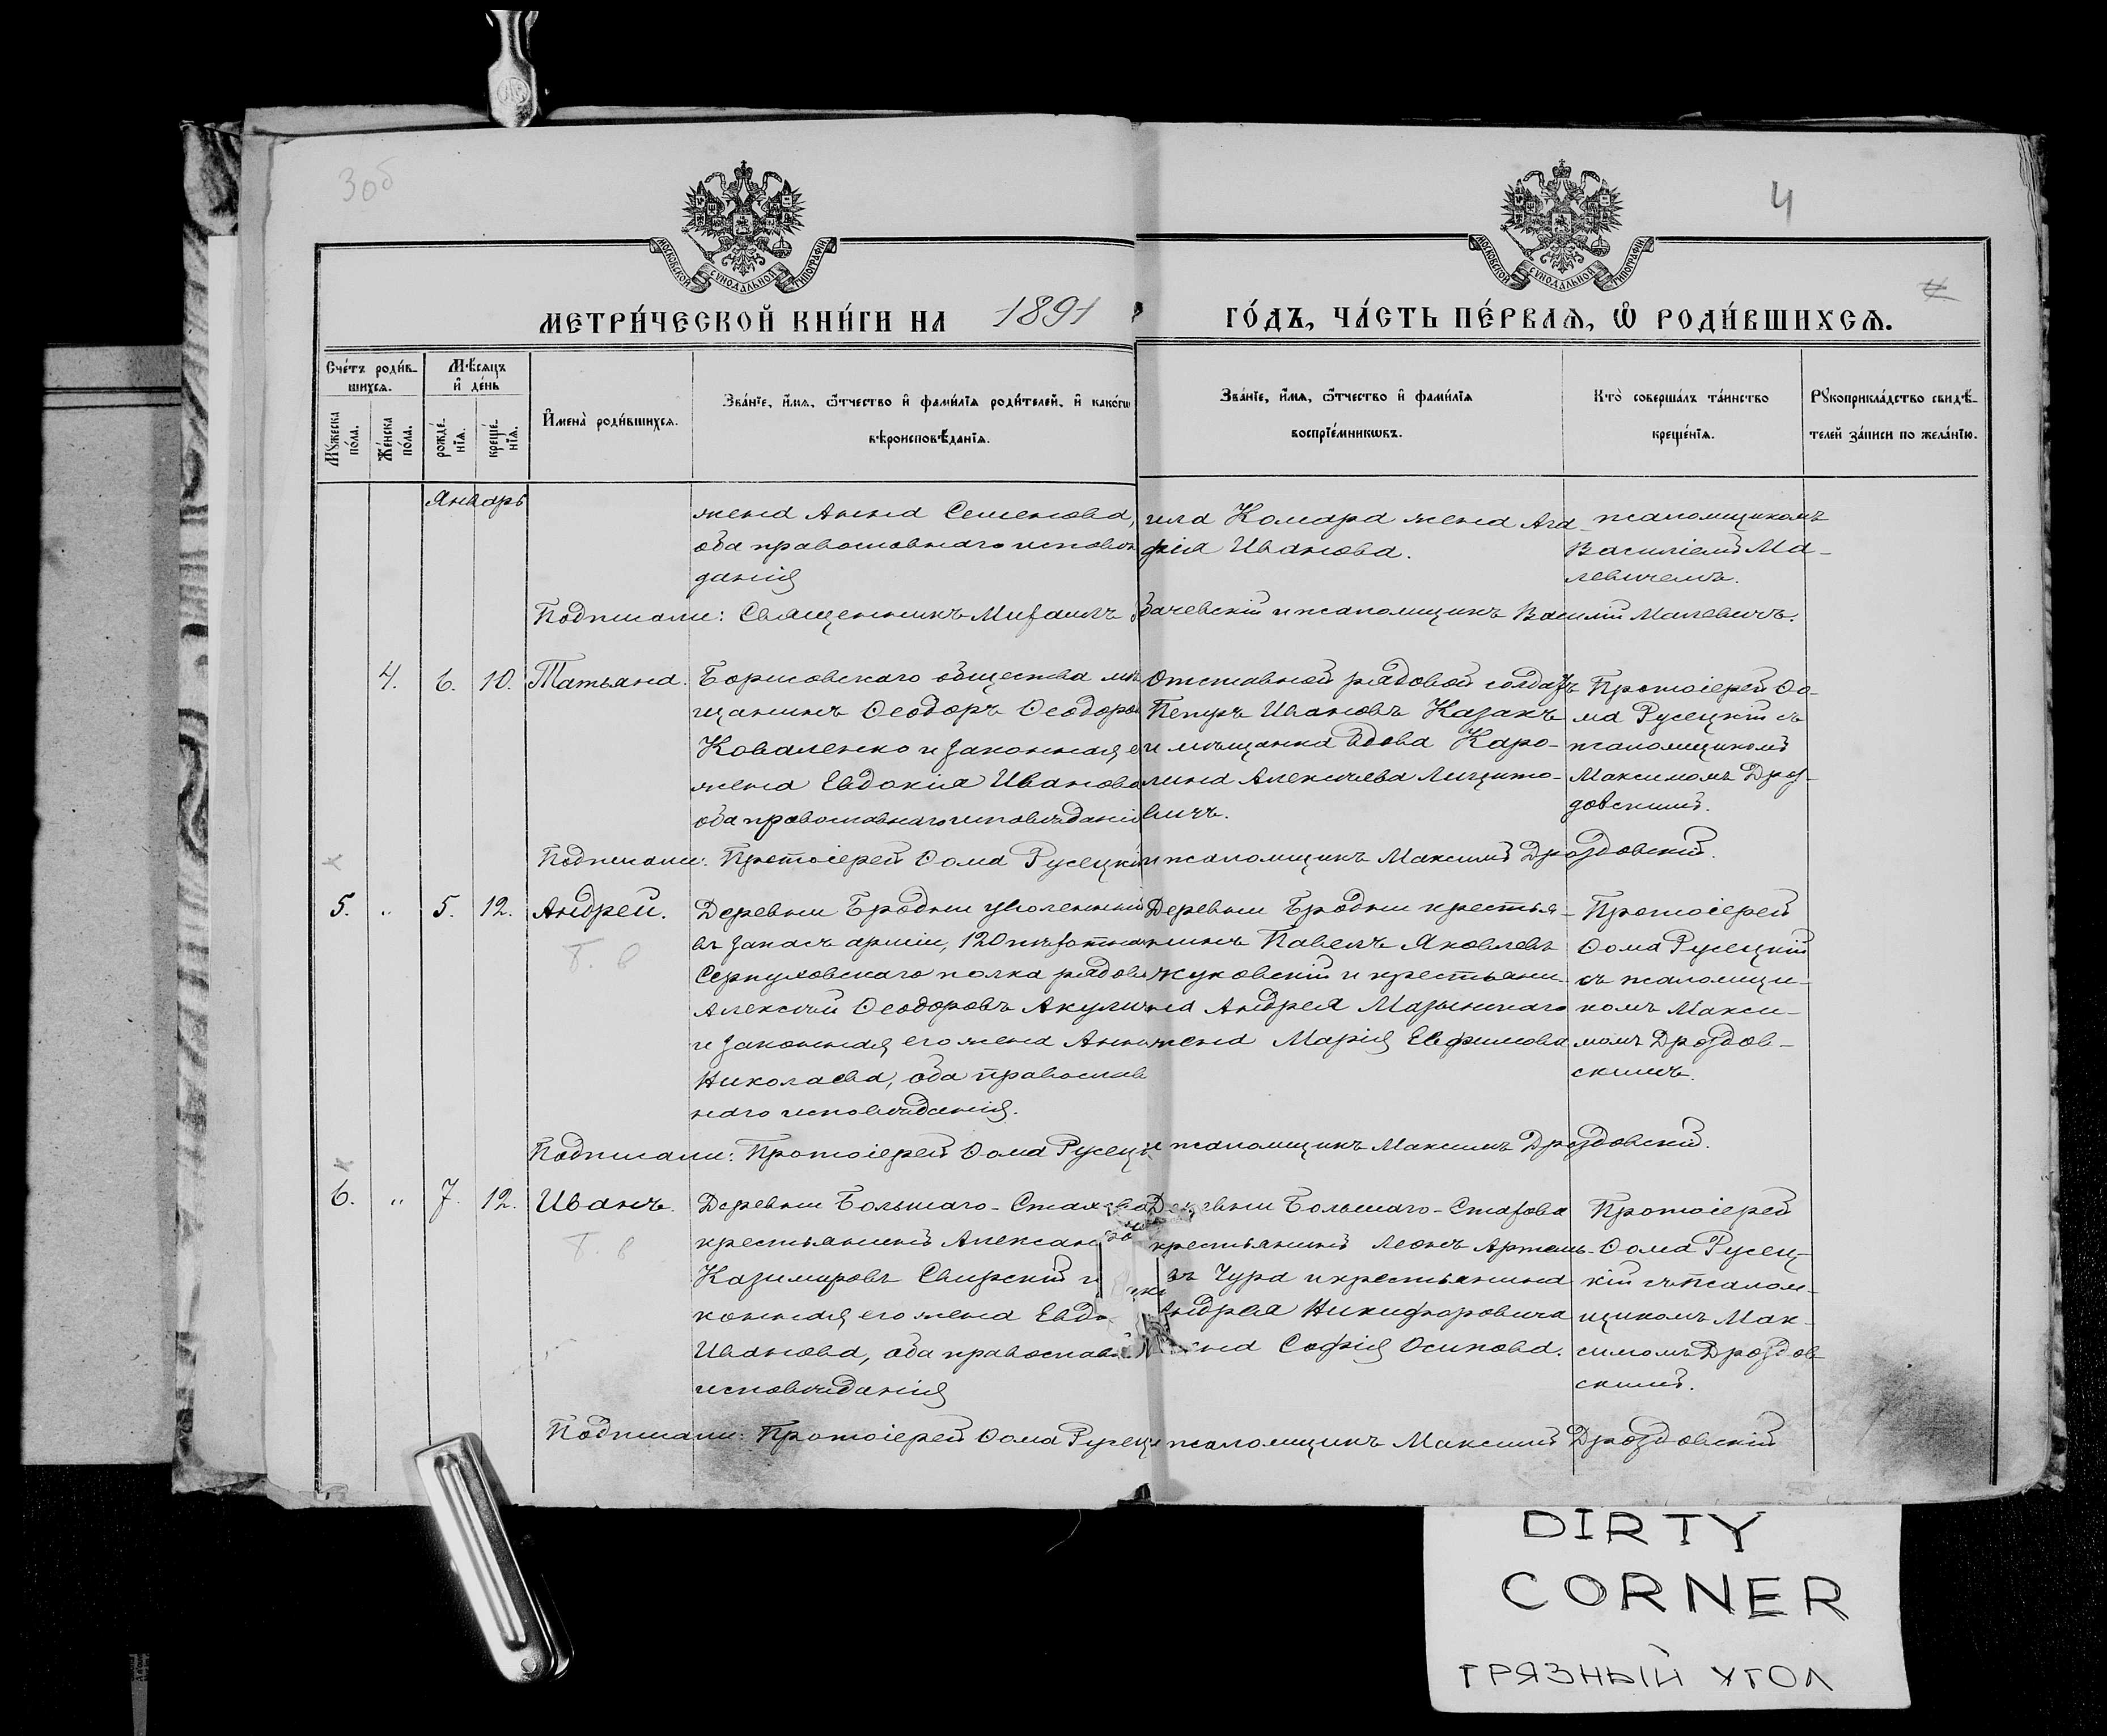 3об
4
МОСКОВСКОЙ СѴНОДАЛЬНОЙ ТИПОГРАФІИ
МОСКОВСКОЙ СѴНОДАЛЬНОЙ ТИПОГРАФІИ
МЕТРИ́ЧЕСКОЙ КНИ́ГИ НА 1891
ГО́ДЪ, ЧА́СТЬ ПЕ́РВАѦ, Ѿ РОДИ́ВШИХСѦ.
Сче́тъ роди́в-
шихсѧ.
Мꙋ́жеска по́ла.
Же́нска по́ла.
Мѣ́сяцъ
и҆ де́нь
рожде́-
нїѧ.
креще́-
нїѧ.
И҆мена̀ роди́вшихсѧ.
Зва́нїе, и҆́мѧ, ѻ҆́тчество и҆ фами́лїѧ роди́телей, и҆ како́гѡ
вѣроисповѣ́данїѧ.
Зва́нїе, и҆́мѧ, ѻ҆́тчество и҆ фами́лїѧ
воспрїе́мникѡвъ.
Кто̀ соверша́лъ та́инство
креще́нїѧ.
Рꙋкоприкла́дство свидѣ́-
телей за́писи по жела́нїю.
Январь
жена Анна Семенова,
оба православнаго исповѣ
данія
гила Комара жена Ага-
фія Иванова.
псаломщикомъ
Василіемъ Ма-
левичемъ.
Подписали: Священникъ Михаилъ
бачевскій и псаломщикъ Василій Малевичъ.
4. 6. 10. Татьяна.
Борисовскаго общества мѣ
щанинъ Ѳеодоръ Ѳеодоров
Коваленко и законная е
жена Евдокія Иванова
оба православнаго исповѣданія
Отставной рядовой солдатъ
Петръ Ивановъ Казакъ
и мѣщанка вдова Каро-
лина Алексѣева Лищито-
вичъ.
Протоіерей Ѳо-
ма Русецкій съ
псаломщикомъ
Максимомъ Дроз-
довскимъ.
Подписали: Протоіерей Ѳома Русецкій
и псаломщикъ Максимъ Дроздовскій.
5. " 5. 12. Андрей.
Деревни Бродни уволенный
въ запасъ арміи, 120 пѣхотна
Серпуховскаго полка рядов
Алексѣй Ѳеодоровъ Акулич
и законная его жена Анна
Николаева, оба православ
наго исповѣданія.
Деревни Бродни крестья-
нинъ Павелъ Яковлевъ
Жуковскій и крестьяни-
на Андрея Мазынскаго
жена Марія Евфимова
Протоіерей
Ѳома Русецкій
съ псаломщи-
комъ Макси-
момъ Дроздов-
скимъ.
Подписали: Протоіерей Ѳома Русецк
и псаломщикъ Максимъ Дроздовскій.
6. " 7. 12. Иванъ.
Деревни Большаго-Стахова
крестьянинъ Александ
Казимировъ Свирскій и
конная его жена Евдо
Иванова, оба православ
исповѣданія
Деревни Большаго-Стахова
крестьянинъ Леонъ Артемь-
въ Чура и крестьянина
Андрея Никифоровича
жена Софія Осипова.
Протоіерей
Ѳома Русец-
кій съ псалом-
щикомъ Мак-
симомъ Дроздов
скимъ.
Подписали: Протоіерей Ѳома Русецк
и псаломщикъ Максимъ Дроздовскій
DIRTY
CORNER
ГРЯЗНЫЙ УГОЛ